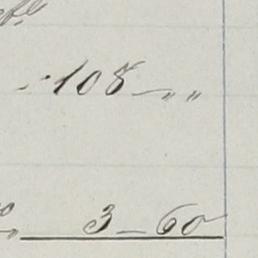 108 — „ „
3 — 60